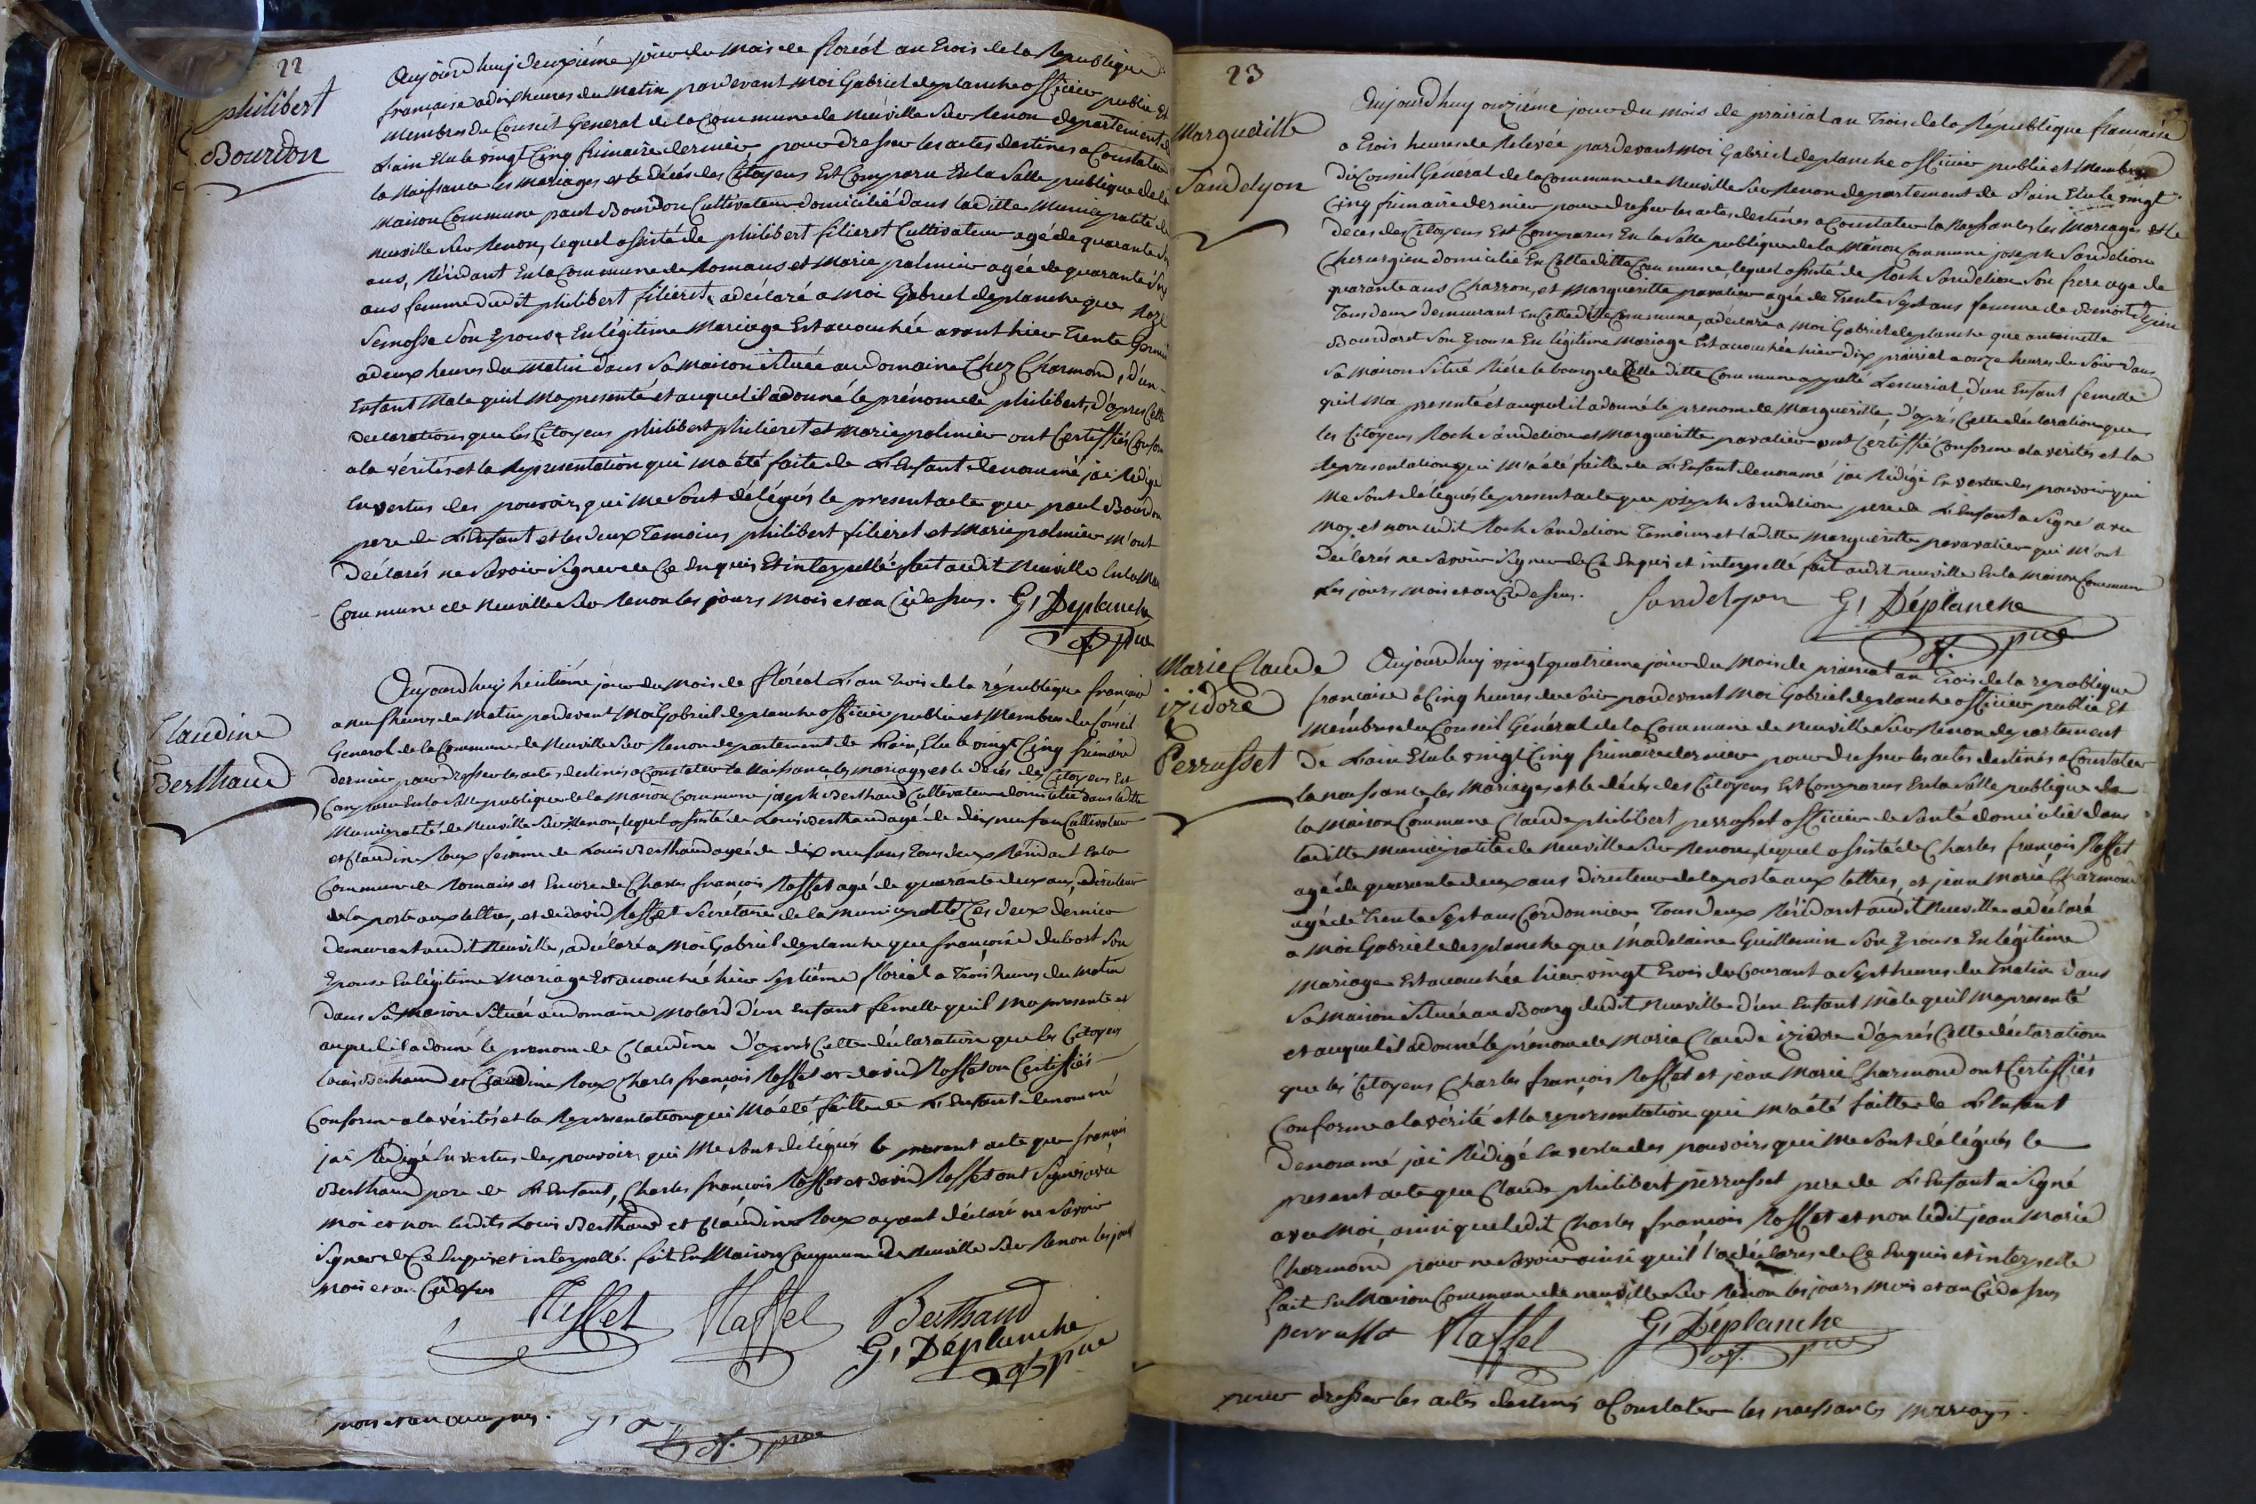 22
philibert
Bourdon
Aujourd'huy deuxiéme jour du Mois de floréal an trois de la République
française a dix heures du Matin pardevant Moi Gabriel deplanche officier public Et
Membres du Conseil General de la Commune de Neuville Sur Renon departement de
L'ain Elu le vingt Cinq frimaire dernier pour dresser les actes destinés a Constater
la Naissance les Mariages et le Décés des Citoyens Est Comparu En la Salle publique de la
Maison Commune paul Bourdon Cultivateur domicilié dans laditte Municipalité de
Neuville Sur Renon, lequel assisté de philibert filieret Cultivateur agé de quarante
ans, Résidant En la Commune de Romans et Marie palmier agée de quarante
ans femme dudit philibert filieret, a déclaré a Moi Gabriel deplanche que Roze
Semosse Son Epouse En légitime Mariage Est acouchée avant hier Trente Germi
a deux heures du Matin dans Sa Maison située au domaine Chez Charmond, d'un
Enfant Male qu'il M'a presenté et auquel il a donné le prénom de philibert, d'apres Cette
declarations que les Citoyens philibert philieret et Marie palmier ont Certiffiés Conform
a la vérités et la Representation qui M'a été faite de L'Enfant denommé j'ai Rédigé
En vertus des pouvoirs qui Me Sont délégués le present acte que paul Bourdon
pere de L'Enfant et les deux Temoins philibert filieret et Marie palmier M'ont
Déclarés ne Savoir Signer de Ce Enquis Et interpellé fait audit Neuville En la Mai
Commune de Neuville Sur Renon les jours Mois et an Cidessus. G, Déplanche
of. pue
Claudine
Berthaud
Aujourd'huy huitiéme jour du Mois de floréal L'an trois de la république française
a neuf heures du Matin pardevant Moi Gabriel deplanche officier public et Membre du Conseil
General de la Commune de Neuville Sur Renon departement de L'ain, Elu le vingt Cinq frimaire
dernier pour dresser les actes destinés a Constater la Naissance les Mariages et le Décés des Citoyens Est
Comparu En la Salle publique de la Maison Commune joseph Berthaud Cultivateur domicilié dans laditte
Municipalité de Neuville Sur Renon, lequel assisté de Louis Berthaud agé de dix neuf an Cultivateur
et Claudine Roux femme de Louis Berthaud agée de dix neuf ans tous deux Résidant En la
Commune de Romans et Encore de Charles françois Roffet agé de quarante deux ans, directeur
de la poste aux lettres, et de david Roffet Secrétaire de la Municipalité Ces deux dernier
demeurant audit Neuville, a déclaré a Moi Gabriel deplanche que françoise dubost Son
Epouse En légitime Mariage Est acouché hier Septiéme floréal a Trois heures du Matin
dans Sa Maison Située au domaine Molard d'un Enfant femelle qu'il M'a presente et
auquel il a donné le prenom de Claudine d'apres Cette déclaration que les Citoyens
Louis Berthaud et Claudine Roux Charles françois Roffet et david Roffet ont Certiffiés
Conforme a la vérités et la Representation qui M'a été faitte de L'Enfant denommé
j'ai Rédigé En vertus des pouvoirs qui Me Sont délégués le present acte que françois
Berthaud pere de L'Enfant, Charles françois Roffet et david Roffet ont Signés avec
Moi et non lesdits Louis Berthaud et Claudine Roux ayant déclaré ne Savoir
Signer de Ce Enquis et interpellé. fait En Maison Commune de Neuville Sur Renon les jours
Mois et an Cidessus
Roffet Raffet Berthaud
G, Déplanche
of. pue
mois et an
of. pue
23
Margueritte
Sandelyon
Aujourd'huy onziéme jour du Mois de prairial an Trois de la République francaise
a trois heures de Relevée pardevant Moi Gabriel deplanche officier public et Membre
du Conseil Général de la Commune de Neuville Sur Renon departement de L'ain Elu le vingt
Cinq frimaire dernier pour dresser les actes destinés a Constater la Naissance les Mariages et le
Déces des Citoyens Est Comparus En la Salle publique de la Maison Commune joseph Sandelion
Cherurgien domicilié En Cette ditte Commune, lequel assisté de Roch Sandelion Son frere agé de
quarante ans Charron, et Margueritte pavalier agée de Trente Sept ans femme de Benoit
Tous deux demeurant En Cette ditte Commune, a déclaré a Moi Gabriel deplanche que antoinette
Bourdaret Son Epouse En légitime Mariage Est acouchée hier dix prairial a onze heures du Soir dans
Sa Maison Situé Riére le bourg de Cette ditte Commune appellé Lescuriat, d'un Enfant femelle
qu'il M'a presenté et auquel il a donné le prenom de Margueritte, d'aprés Cette declaration que
les Citoyens Roch Sandelion et Margueritte pavalier ont Certiffié Conforme a la vérités et la
Representation qui M'a été faitte de L'Enfant denommé j'ai Rédigé En vertu des pouvoir qui
Me Sont délégués le present acte que joseph Sandelion pere de L'Enfant a Signé avec
Moy, et non ledit Roch Sandelion Temoins et laditte Margueritte pavavalier qui M'ont
Déclarés ne Savoir Signer de Ce Enquis et interpellé fait audit neuville En la Maison Commune
Les jours Mois et an Cidessus. Sandelyon G, Déplanche
of. pue
Marie Claude
izidore
Perrusset
Aujourd'huy vingt quatrieme jour du Mois de prairial an Trois de la republique
francaise a Cinq heures du Soir pardevant Moi Gabriel deplanche officier public Et
Membre du Conseil Général de la Commune de Neuville Sur Renon departement
De L'ain Elu le vingt Cinq frimaire dernier pour dresser les actes destinés a Constater
la naissance les Mariages et le décés des Citoyens Est Comparus En la Salle publique de
la Maison Commune Claude philibert perrosset officier de Santé domicilié dans
laditte Municipalité de Neuville Sur Renon, lequel assisté de Charles françois Roffet
agé de quarante deux ans directeur de la poste aux lettres, et jean Marie Charmond
agé de Trente Sept ans Cordonnier Tous deux Résidant audit Neuville a déclaré
a Moi Gabriel desplanche que Madelaine Guillemin Son Epouse En légitime
Mariage Est acouchée hier vingt trois du Courant a Sept heures du Matin dans
Sa Maison Située au Bourg dudit Neuville d'un Enfant Mâle qu'il M'a presenté
et auquel il a donné le prénom de Marie Claude izidore d'aprés Cette déclaration
que les Citoyens Charles françois Roffet et jean Marie Charmond ont Certiffiés
Conforme a la vérité et la representation qui M'a été faitte de L'Enfant
Denommé j'ai Rédigé En vertu des pouvoirs qui Me Sont délégués le
present acte que Claude philibert perrusset pere de L'Enfant a Signé
avec Moi, ainsi que ledit Charles françois Roffet et non ledit jean Marie
Charmond pour ne Savoir ainsi qu'il l'a déclarés de Ce Enquis et interpellé
fait En Maison Commune de neuville Sur Renon les jours Mois et an Cidessus
perrusset Raffet G, Déplanche
of. pue
pour dresser les actes destinés a Constater les naissances mariages.